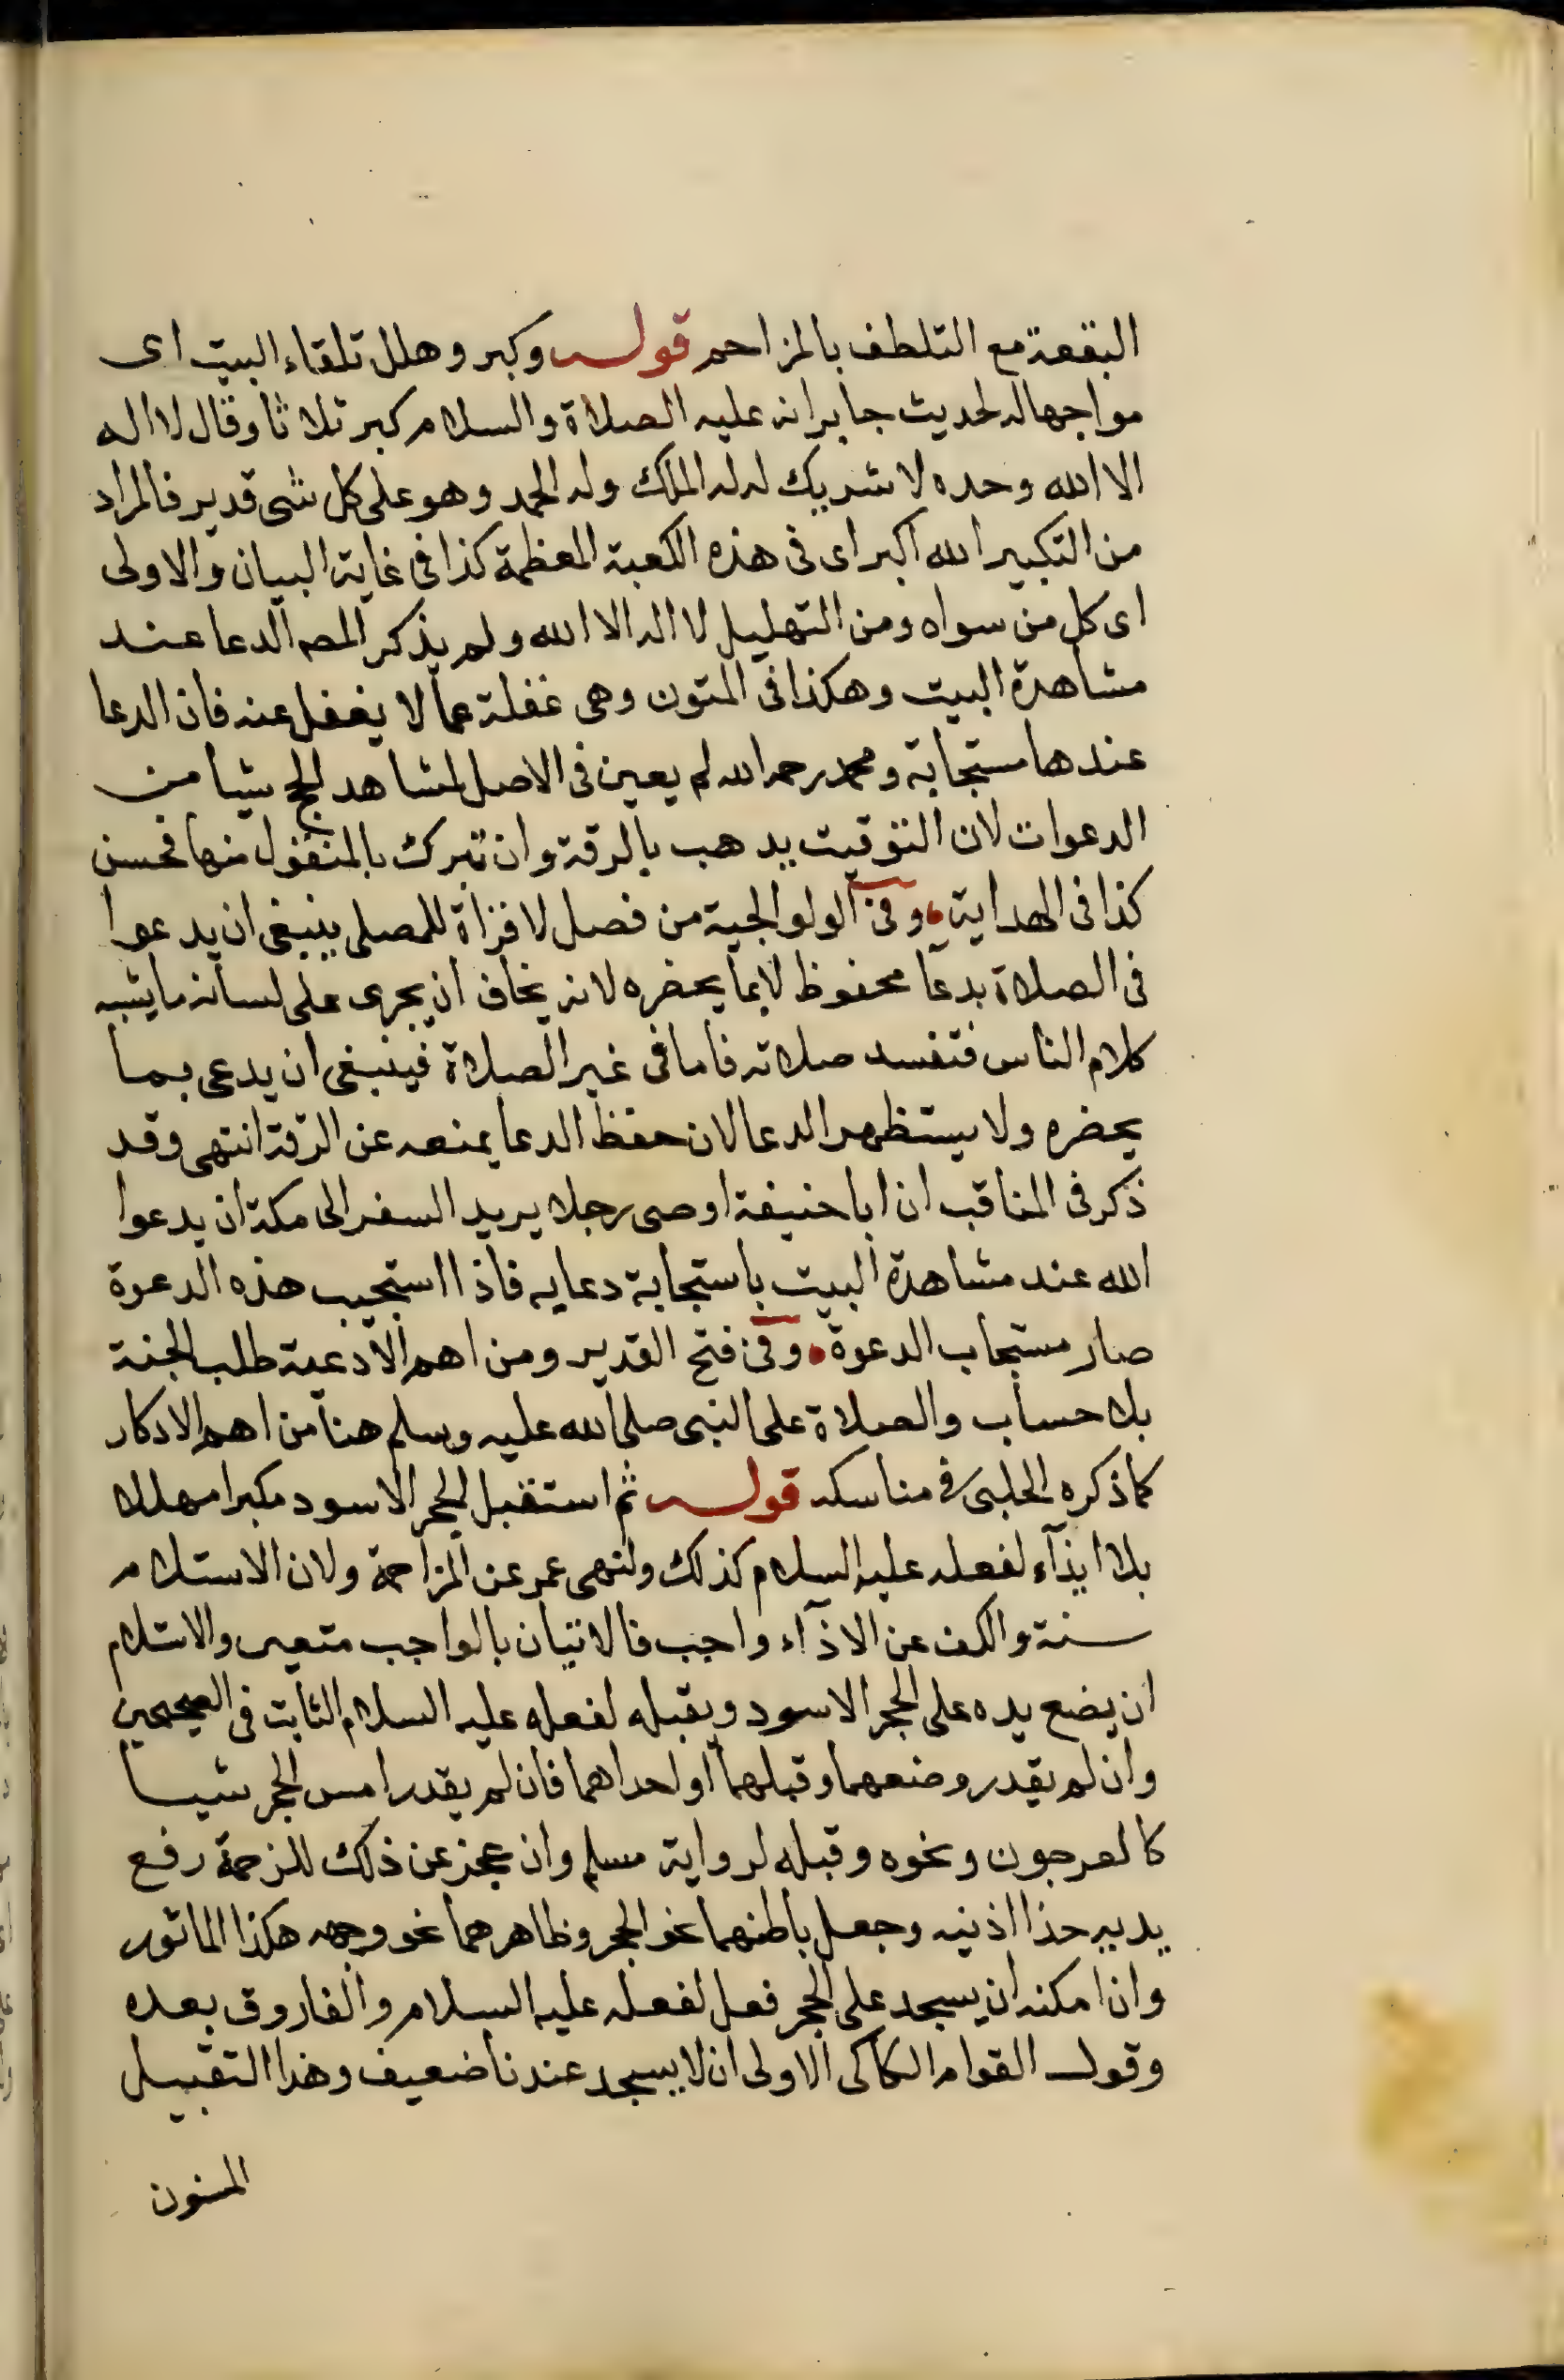 البقعة مع التلطف بالمزاحم قوله وكبر وهلل تلقاء البيت اى
مواجها له لحديث جابر انه عليه الصلاة والسلام كبر ثلاثا وقال لا اله
الا الله وحده لا شريك له له الملك وله الحمد وهو على كل شى قدير فالمراد
من التكبير الله اكبر اى فى هذه الكعبة المعظمة كذا فى غاية البيان والاولى
اى كل من سواه ومن التهليل لا اله الا الله ولم يذكر المصه الدعا عند
مشاهدة البيت وهكذا فى المتون وهى غفلة عما لا يغفل عنه فان الدعا
عندها مستجابة ومحمد رحمه الله لم يعين فى الاصل لمشاهد الحج شيا من
الدعوات لان التوقيت يدهب بالرقة وان تبرك بالمنقول منها فحسن
كذا فى الهداية وفى الولوالجية من فصل لاقراة للمصلى ينبغى ان يدعوا
فى الصلاة بدعا محفوظ لا بما يحضره لانه يخاف ان يجرى على لسانه ما يشبه
كلام الناس فتفسد صلاته فاما فى غير الصلاة فينبغى ان يدعى بما
يحضره ولا يستظهر الدعا لان حفظ الدعا يمنعه عن الرقة انتهى وقد
ذكر فى المناقب ان ابا حنيفة اوصى رجلا يريد السفر الى مكة ان يدعوا
الله عند مشاهدة البيت باستجابة دعايه فاذا استجيب هذه الدعوة
صار مستجاب الدعوة وفى فتح القدير ومن اهم الادعية طلب الجنة
بلا حساب والصلاة على النبى صلى الله عليه وسلم هنا من اهم الادكار
كما ذكره الحلبى فى مناسكه قوله ثم استقبل الحجر الاسود مكبرا مهللا
بلا ايذآء لفعله عليه السلام كذلك ولنهى عمر عن المزاحمة ولان الاستلام
سنة والكف عن الاذآء واجب فالاتيان بالواجب متعين والاستلام
ان يضع يده على الحجر الاسود ويقبله لفعله عليه السلام الثابت فى الصحيحين
وان لم يقدر وضعهما وقبلهما او احداهما فان لم يقدر امس الحجر شيا
كالعرجون ونحوه وقبله لرواية مسلم وان عجز عن ذلك للزحمة رفع
يديه حذا اذنيه وجعل باطنهما نحو الحجر وظاهرهما نحو وجهه هكذا الماثور
وان امكنه ان يسجد على الحجر فعل لفعله عليه السلام والفاروق بعده
وقول القوام الكاكى الاولى ان لا يسجد عندنا ضعيف وهذا التقبيل
المسنون